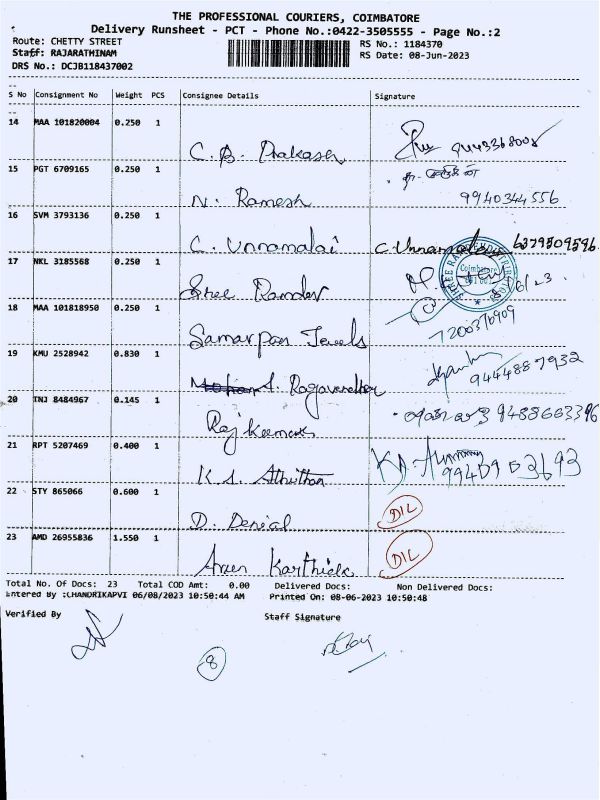 THE PROFESSIONAL COURIERS, COIMBATORE
Delivery Runsheet - PCT - Phone No.:0422-3505555 - Page No.:2
Route: CHETTY STREET RS No.: 1184370
Staff: RAJARATHINAM RS Date: 08-Jun-2023
DRS No.: DCJB118437002
S No Consignment No Weight PCS Consignee Details Signature
14 MAA 101820004 0.250 1
C. B. Prakash 9443368008
15 PGT 6709165 0.250 1
N. Ramesh 9940344556
16 SVM 3793136 0.250 1
C. Unnamalai C. Unnamalai 6379509596
17 NKL 3185568 0.250 1
Shree Ramdev
18 MAA 101818950 0.250 1
Samarpan Jewels 7200376909
19 KMU 2528942 0.830 1
Ragavendher 9444887932
20 TNJ 8484967 0.145 1
Raj Kumar 9488663396
21 RPT 5207469 0.400 1
K. S. Athithan
22 STY 865066 0.600 1
D. Denial DIL
23 AMD 26955836 1.550 1
Arun Karthick DIL
Total No. Of Docs: 23 Total COD Amt: 0.00 Delivered Docs: Non Delivered Docs:
Entered By :CHANDRIKAPVI 06/08/2023 10:50:44 AM Printed On: 08-06-2023 10:50:48
Verified By Staff Signature
8